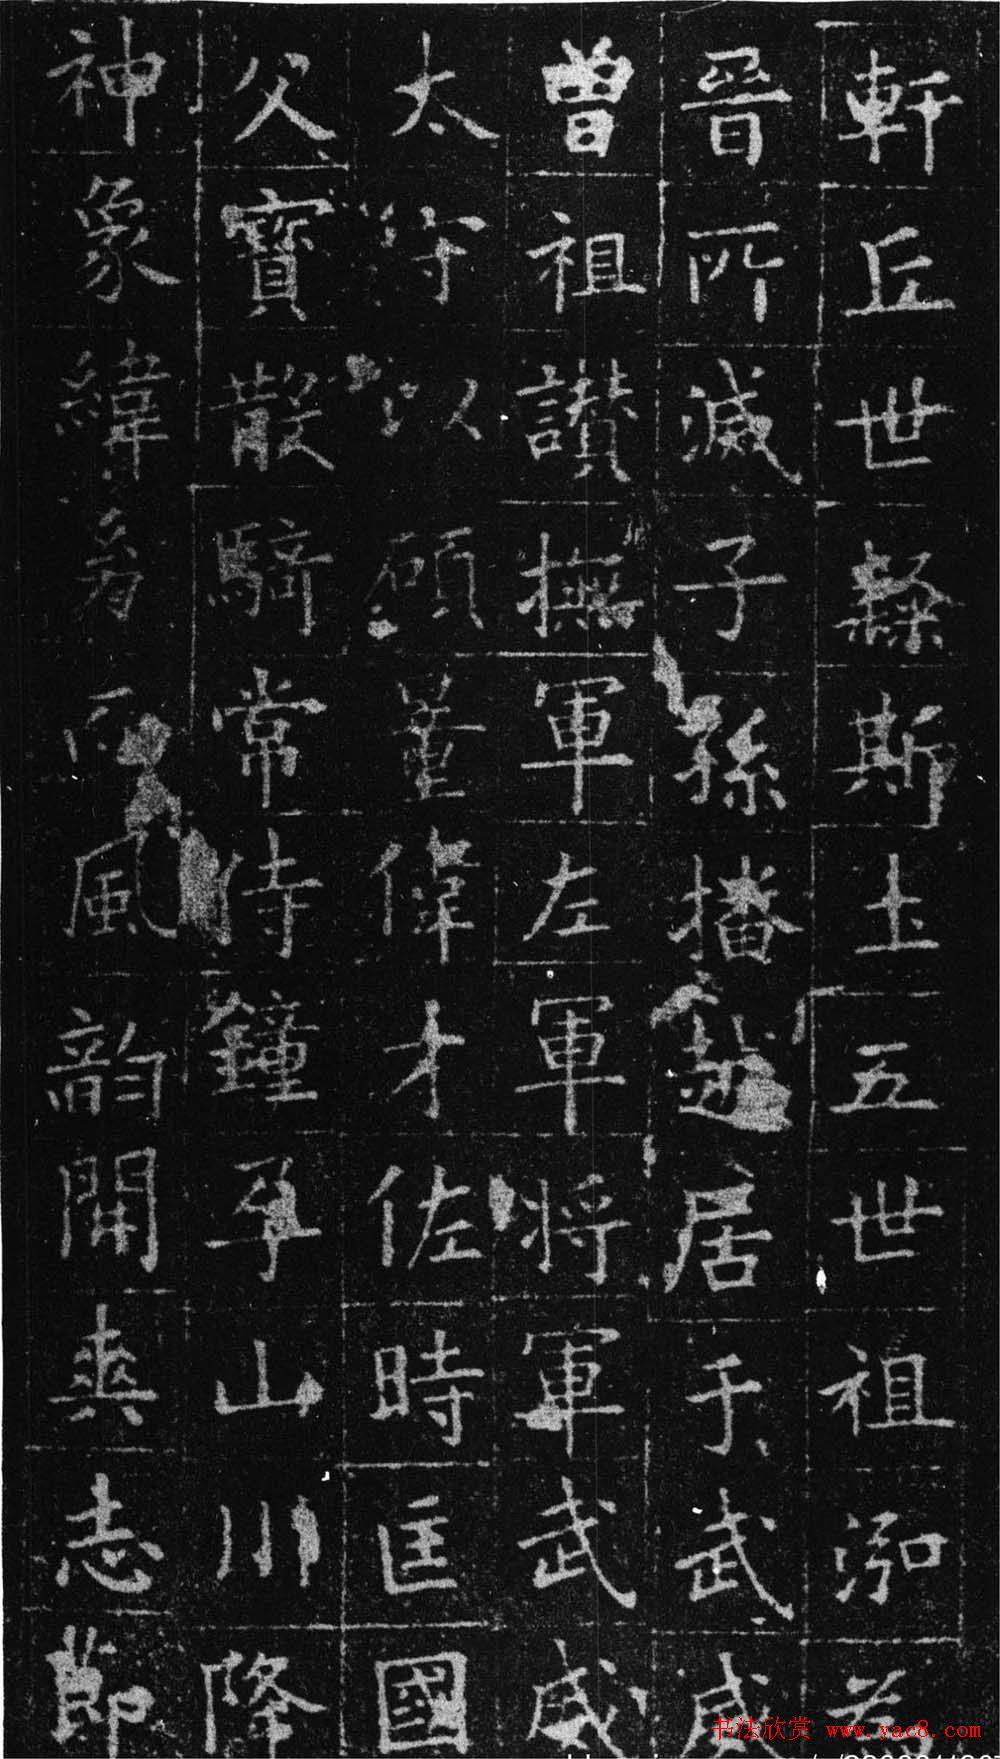 軒丘世斯土五世祖泓為
晉所滅子孫播越居于武威
曾祖讃撫軍左軍將軍武威
太守以碩偉才佐時匡國
父寶散騎常侍鐘孕山川降
神象緯風韵開爽志節
书法欣赏 www.yac8.com